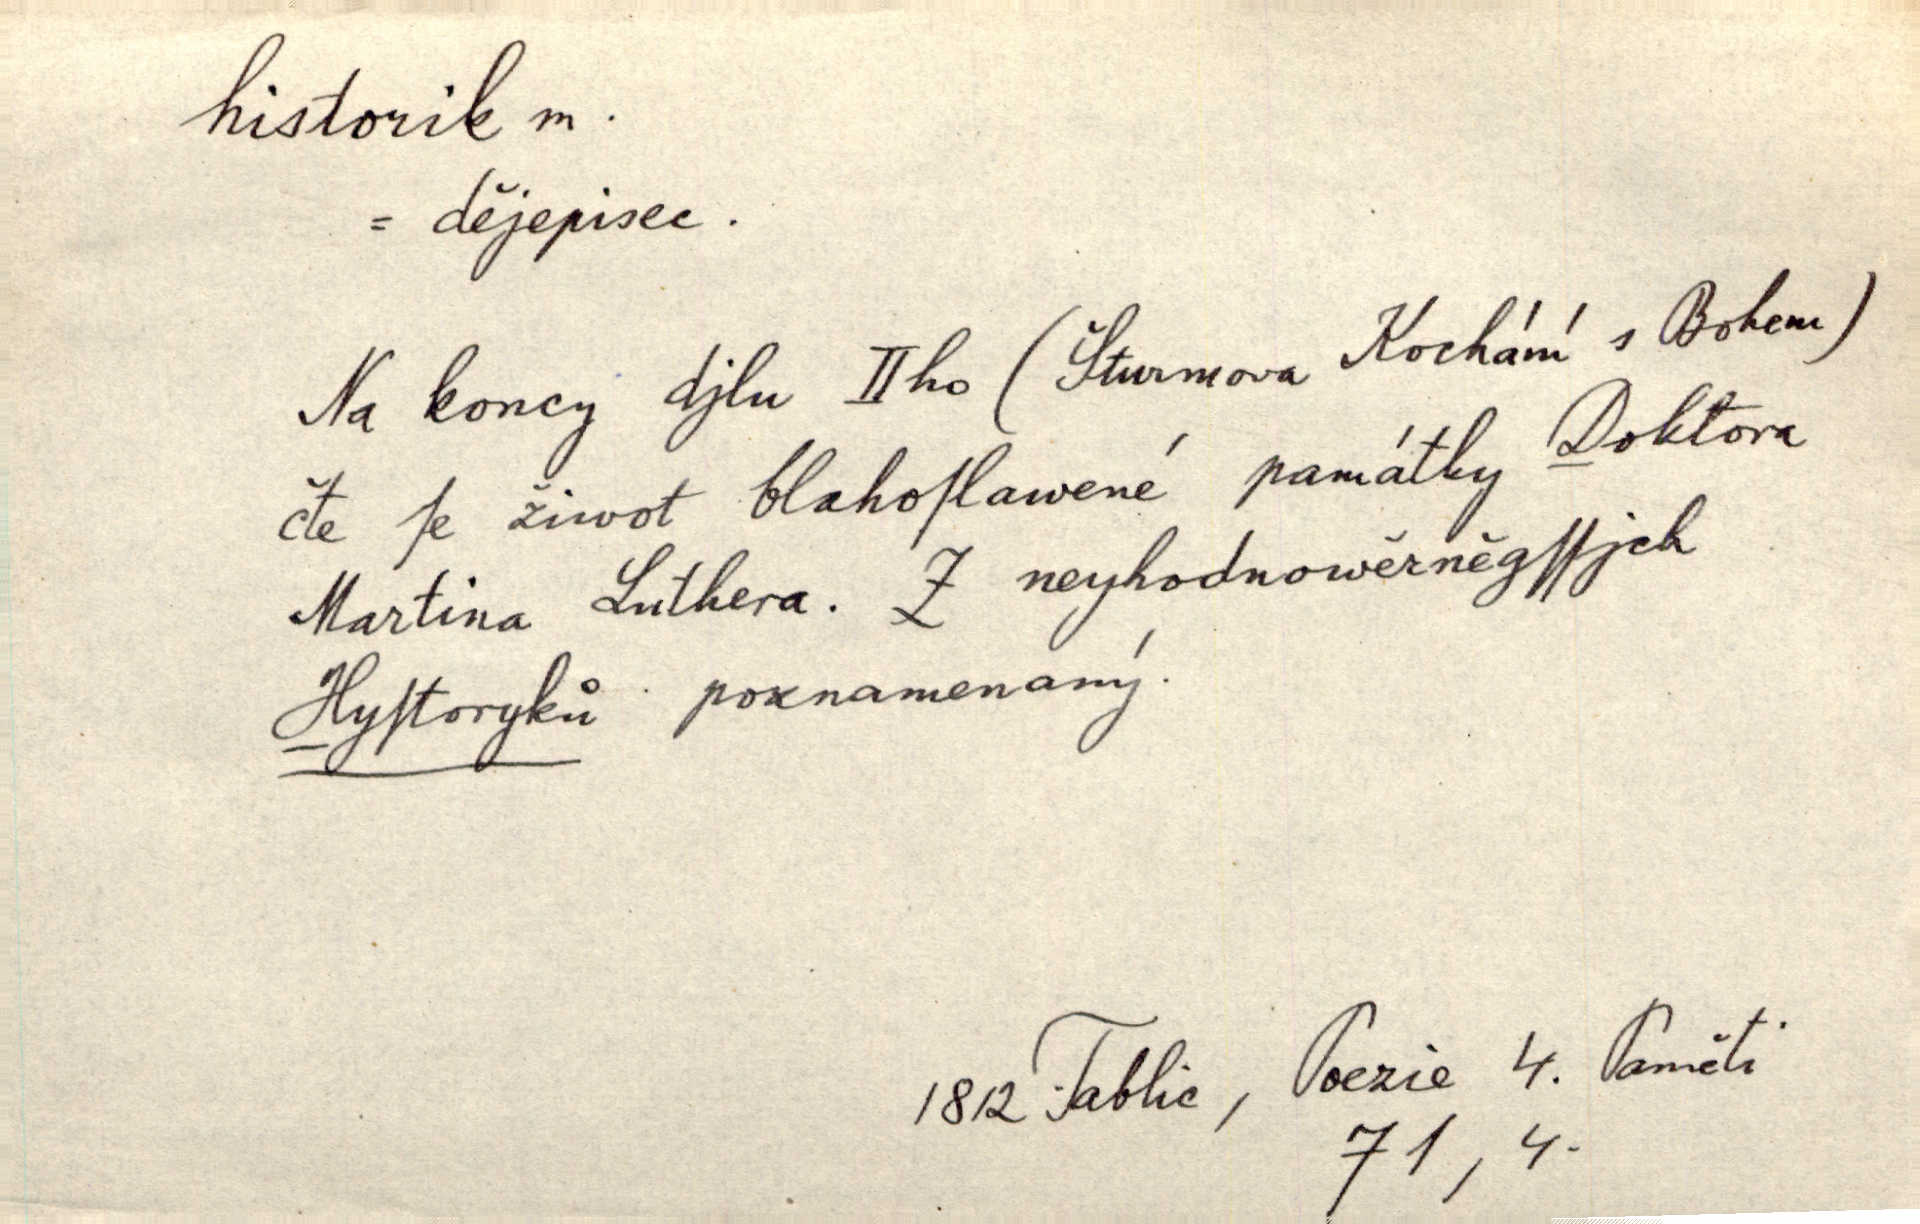 historik m.
= dějepisec.
Na koncy djlu II ho (Šturmova Kochání s Bohem)
čte ſe žiwot blahoſlawené památky Doktora
Martina Luthera. Z neyhodnowěrněgſſjch
Hyſtoryků poznamenaný.
1812 Tablic, Poezie 4. Paměti
71, 4.